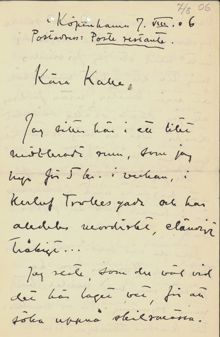 7/8 06
Köpenhamn 7. VIII. 06
Postadress: Poste restante.
Kära Kalle,
Jag sitter här i ett litet
möblerade rum, som jag
hyr för 5 kr. i veckan, i
Herluf Trolles gade och har
alldeles mordiskt, eländigt
tråkigt...
Jag reste, som du väl vid
det här laget vet, för att
söka uppnå skilsmässa.